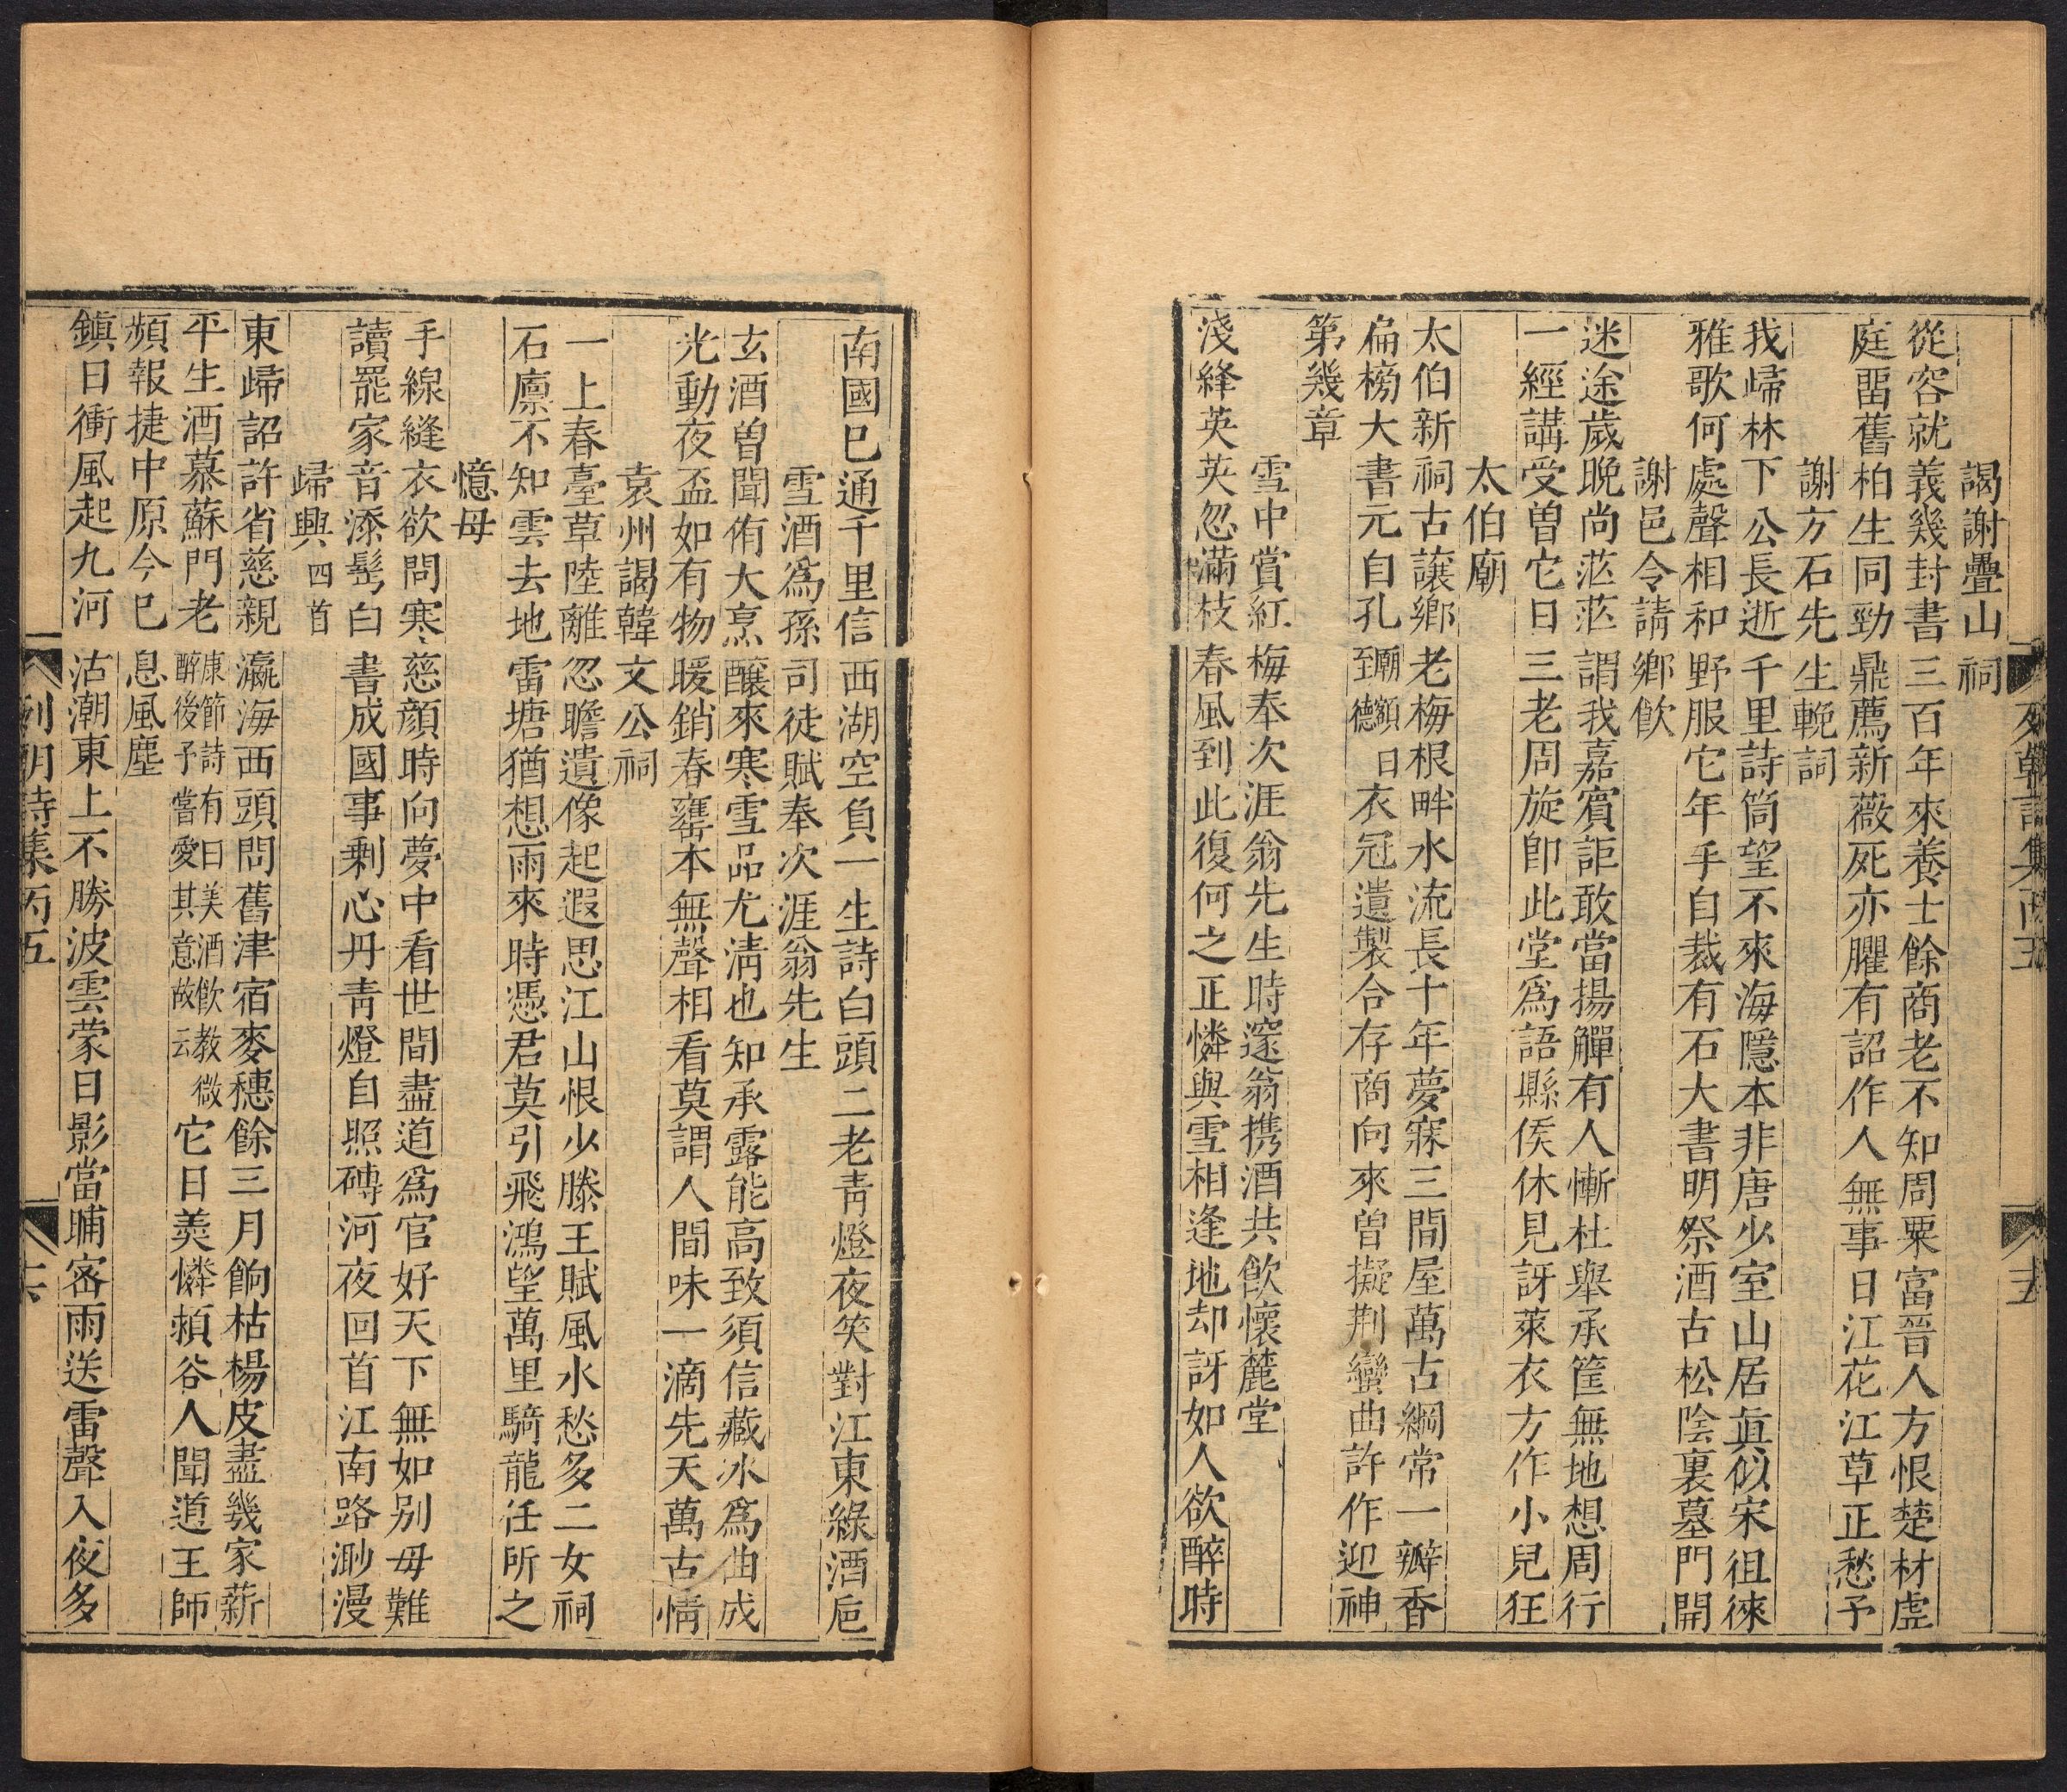 謁謝疊山祠
從容就義幾封書三百年來養士餘商老不知周粟富晉人方恨楚材虛
庭畱舊柏生同勁鼎薦新薇死亦臞有詔作人無事日江花江草正愁予
謝方石先生輓詞
我歸林下公長逝千里詩筒望不來海隱本非唐少室山居眞似宋徂徠
雅歌何處聲相和野服它年手自裁有石大書明祭酒古松陰裏墓門開
謝邑令請鄉飲
迷途歲晚尚茫茫謂我嘉賓詎敢當揚觶有人慚杜舉承筐無地想周行
一經講受曾它日三老周旋卽此堂爲語縣侯休見訝萊衣方作小兒狂
太伯廟
太伯新祠古讓鄉老梅根畔水流長十年夢寐三間屋萬古綱常一瓣香
扁榜大書元自孔廟額曰至德衣冠遺製合存商向來曾擬荆蠻曲許作迎神
第幾章
雪中賞紅梅奉次涯翁先生時邃翁携酒共飲懷麓堂
淺絳英英忽滿枝春風到此復何之正憐與雪相逢地却訝如人欲醉時
南國已通千里信西湖空負一生詩白頭二老靑燈夜笑對江東綠酒巵
雪酒爲孫司徒賦奉次涯翁先生
玄酒曾聞侑大烹釀來寒雪品尤淸也知承露能高致須信藏冰爲曲成
光動夜盃如有物暖銷春罋本無聲相看莫謂人間味一滴先天萬古情
袁州謁韓文公祠
一上春臺草陸離忽瞻遺像起遐思江山恨少滕王賦風水愁多二女祠
石廪不知雲去地雷塘猶想雨來時憑君莫引飛鴻望萬里騎龍任所之
憶母
手線縫衣欲問寒慈顏時向夢中看世間盡道爲官好天下無如別母難
讀罷家音添髩白書成國事剩心丹靑燈自照磚河夜回首江南路渺漫
歸興四首
東歸詔許省慈親瀛海西頭問舊津宿麥穗餘三月餉枯楊皮盡幾家薪
平生酒慕蘇門老康節詩有曰美酒飲教微醉後予嘗愛其意故云它日羹憐頴谷人聞道王師
頻報捷中原今已息風塵
鎮日衝風起九河沽潮東上不勝波雲蒙日影當晡密雨送雷聲入夜多
列朝詩集丙五